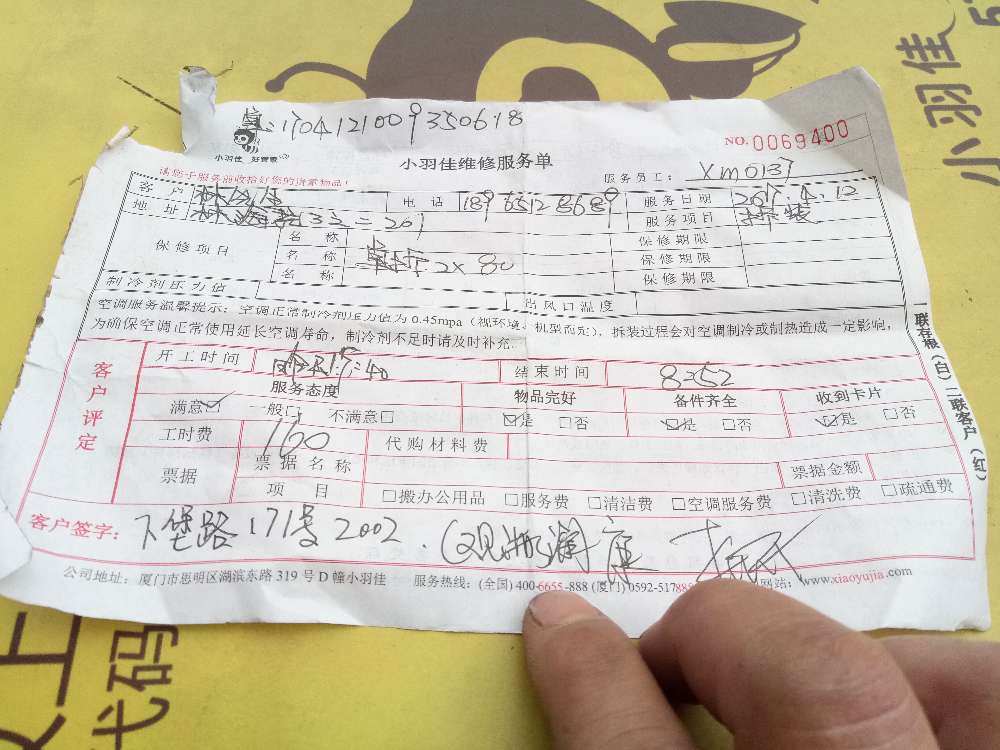 1704121009350618
小羽佳 好管家
NO.0069400
小羽佳维修服务单
服务员工: XM0137
请您于服务前收拾好您的贵重物品!
客户 电话 服务日期 2017.4.12
地址 服务项目
保修项目 名称 保修期限
名称 2×80 保修期限
名称 保修期限
制冷剂压力值 出风口温度
空调服务温馨提示: 空调正常制冷剂压力值为0.45mpa (视环境、机型而定), 拆装过程会对空调制冷或制热造成一定影响,
为确保空调正常使用延长空调寿命, 制冷剂不足时请及时补充.
客户评定
开工时间 结束时间 8:52
服务态度 物品完好 备件齐全 收到卡片
满意☑ 一般□ 不满意□ ☑是 □否 ☑是 □否 ☑是 □否
工时费 160 代购材料费
票据 票据名称 票据金额
项目 □搬办公用品 □服务费 □清洁费 □空调服务费 □清洗费 □疏通费
客户签字: 下堡路171号2002.
公司地址: 厦门市思明区湖滨东路319号D幢小羽佳 服务热线: (全国) 400-6655-888 (厦门) 0592-517 网站: www.xiaoyujia.com
一联存根(白) 二联客户(红)
小羽佳
代码